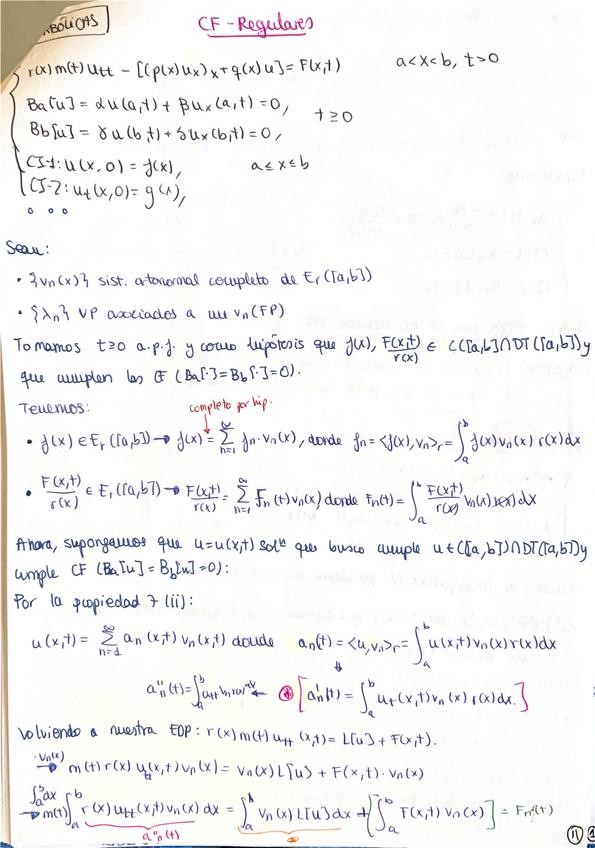 BÓLICAS
CF - Regulares
r(x) m(t) utt - [(p(x) ux)x + q(x) u] = F(x,t) a<x<b, t>0
Ba[u] = αu(a,t) + βux(a,t) = 0,
t ≥ 0
Bb[u] = γu(b,t) + δux(b,t) = 0,
CI-1: u(x,0) = f(x), a ≤ x ≤ b
CI-2: ut(x,0) = g(x),
Sean:
• {vn(x)} sist. ortonormal completo de Er([a,b])
• {λn} VP asociados a un vn (FP)
Tomamos t≥0 a.p.f. y como hipótesis que f(x), F(x,t)/r(x) ∈ C([a,b]) ∩ DT([a,b]) y
que cumplen las CF (Ba[·] = Bb[·] = 0).
Tenemos:
completo por hip.
• f(x) ∈ Er([a,b]) → f(x) = ∑_{n=1}^∞ fn · vn(x), donde fn = <f(x), vn>r = ∫_a^b f(x) vn(x) r(x) dx
• F(x,t)/r(x) ∈ Er([a,b]) → F(x,t)/r(x) = ∑_{n=1}^∞ Fn(t) vn(x) donde Fn(t) = ∫_a^b F(x,t)/r(x) vn(x) r(x) dx
Ahora, supongamos que u=u(x,t) solⁿ que busco cumple u ∈ C([a,b]) ∩ DT([a,b]) y
cumple CF (Ba[u] = Bb[u] = 0):
Por la propiedad 7 (ii):
u(x,t) = ∑_{n=1}^∞ an(x,t) vn(x,t) donde an(t) = <u,vn>r = ∫_a^b u(x,t) vn(x) r(x) dx
a''n(t) = ∫_a^b utt vn r(x) dx ← [a'n(t) = ∫_a^b ut(x,t) vn(x) r(x) dx.]
Volviendo a nuestra EDP: r(x) m(t) utt(x,t) = L[u] + F(x,t).
·vn(x) → m(t) r(x) utt(x,t) vn(x) = vn(x) L[u] + F(x,t) · vn(x)
∫_a^b dx → m(t) ∫_a^b r(x) utt(x,t) vn(x) dx = ∫_a^b vn(x) L[u] dx + [∫_a^b F(x,t) vn(x)] = Fn(t)
a''n(t)
11